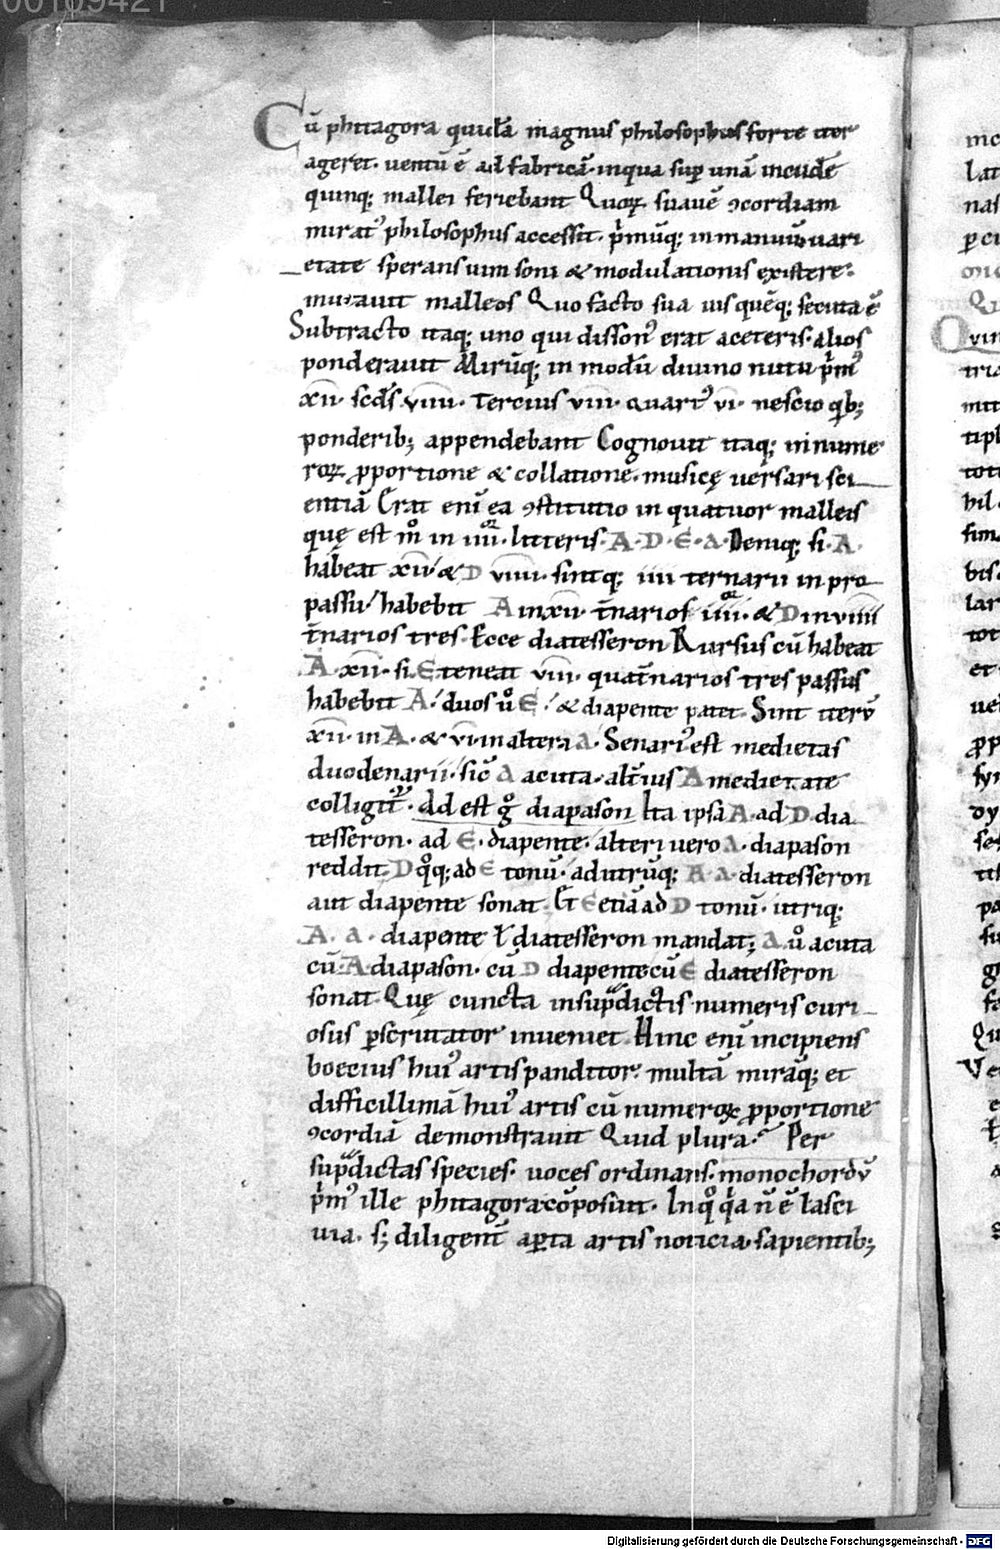 00109421
Cũ phitagora quidã magnus philosophus forte iter
ageret. uentũ ẽ ad fabricã. inqua sup unã incudẽ
quinq; mallei feriebant Quoꝝ suauẽ ꝯcordiam
mirat᾽ philosophus accessit. p̃mũq; in manuũ uari
etate sperans uim soni & modulationis existere.
mutauit malleos Quo facto sua uis quẽq; secuta ẽ
Subtracto itaq; uno qui disson᾽ erat aceteris. alios
ponderauit Mirũq; in modũ diuino nutu p̃m᾽
xii. scd̃s viiii. Tercius viii. quart᾽ vi. nescio qͥb;
ponderib; appendebant Cognouit itaq; in nume
roꝝ ꝓportione & collatione. musicę uersari sci
entiã Erat enĩ ea ꝯstitutio in quatuor malleis
quę est m̊ in iiii. litteris. A. D. E. a. Deniq; si. A.
habeat xii & D viiii. sintq; iiii ternarii in pro
passu habebit A in xii. t̃narios iiii. & D in viiii
t̃narios tres. Ecce diatesseron Rursus cũ habeat
A. xii. si. E teneat viii. quat̃narios tres passus
habebit A. duos ů E. & diapente patet. Sint iterũ
xii. in A. & vi. in altera a. Senari᾽ est medietas
duodenarii. sic̃ a acuta. alt̃ius A medietate
colligit᾽. Id est g̊ diapason Ita ipsa A. ad D. dia
tesseron. ad E. diapente. alteri uero a. diapason
reddit. D qͦq; ad E tonũ. ad utrũq; A a. diatesseron
aut diapente sonat. Et E etiã ad D tonũ. utriq;
A. a. diapente ł diatesseron mandat; a. ů acuta
cũ A diapason. cũ D diapente cũ E diatesseron
sonat. Quę cuncta in sup̃dictis numeris curi
osus ꝑscrutator inueniet. Hinc enĩ incipiens
boecius hui᾽ artis panditor. multã mirãq; et
difficillimã hui᾽ artis cũ numeroꝝ ꝓportione
ꝯcordiã demonstrauit Quid plura. Per
sup̃dictas species. uoces ordinans. monochordũ
p̃m᾽ ille phitagora cõposuit. In qͦ qͥa ñ ẽ lasci
uia. s; diligent̃ aꝑta artis noticia. sapientib;
Digitalisierung gefördert durch die Deutsche Forschungsgemeinschaft - DFG